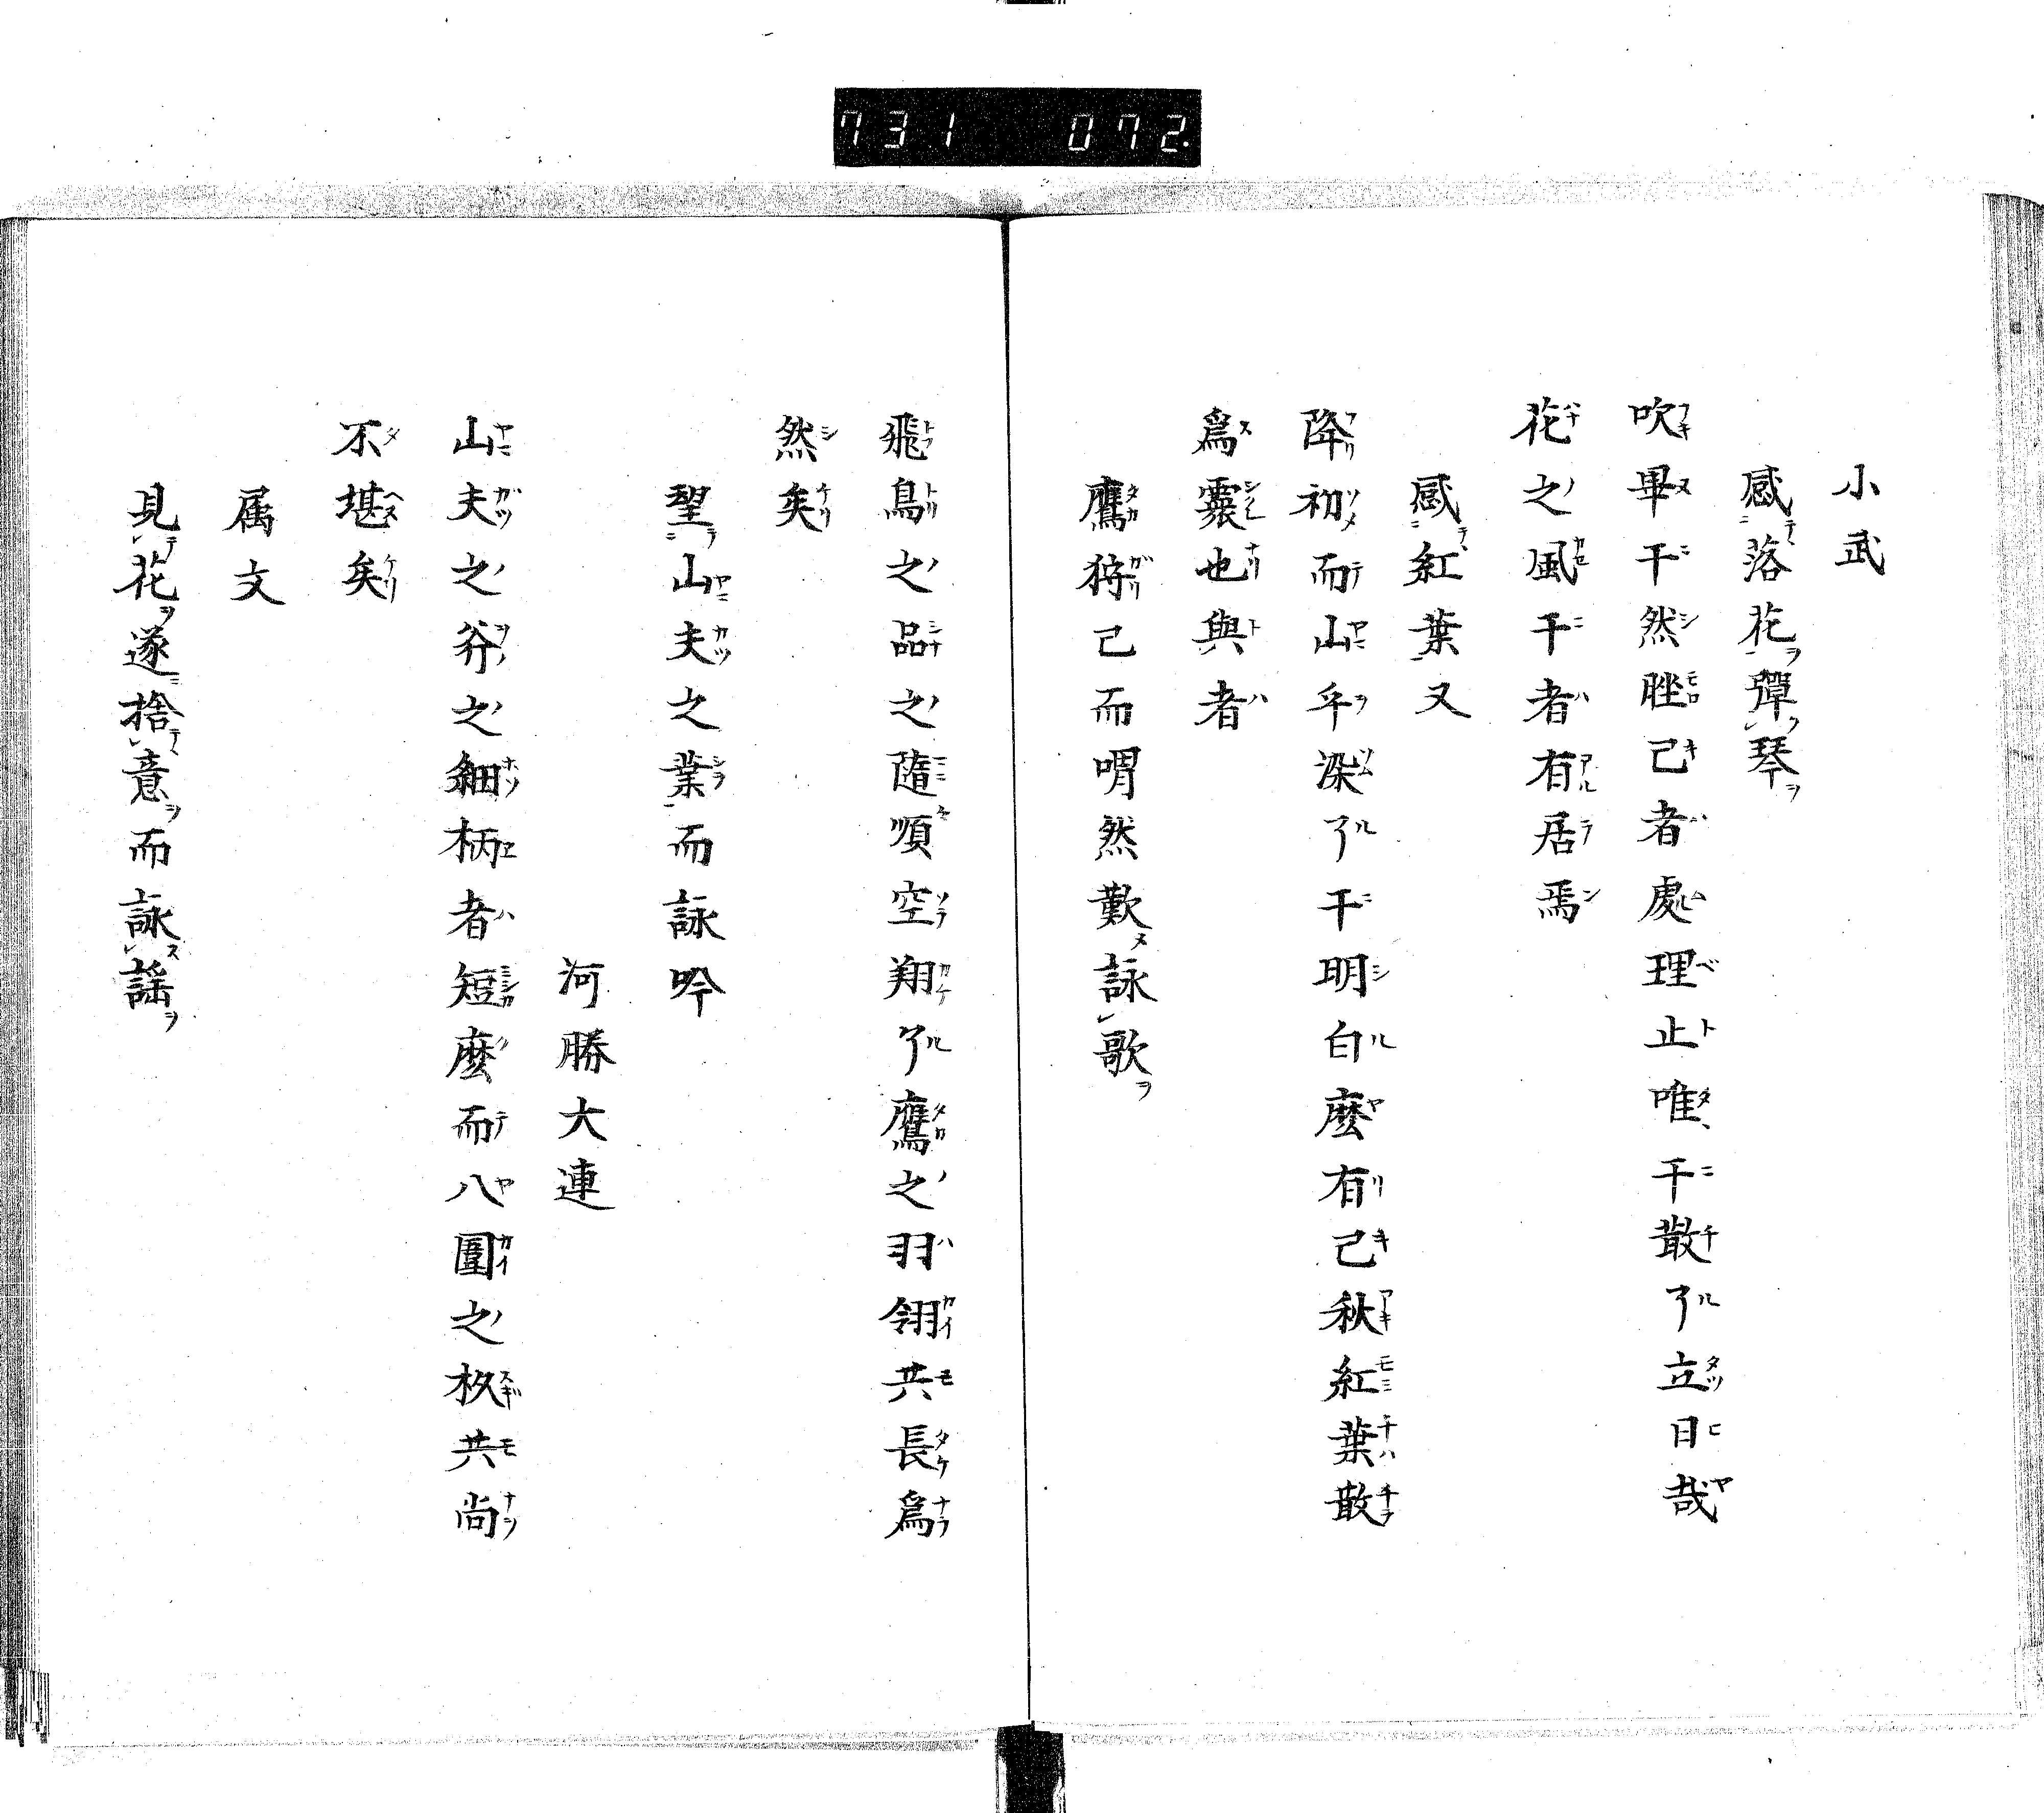 731 072.
小武
感落花彈琴
吹畢干然脞己者處理止唯干散了立日哉
花之風干者有居焉
感紅葉又
降初而山乎染了干明白麼有己秋紅葉散
為霥也與者
鷹狩己而喟然歎詠歌
飛鳥之品之隨順空翔了鷹之羽翎共長為
然矣
望山夫之業而詠吟
河勝大連
山夫之斧之細柄者短麼而八圍之杦共尚
不堪矣
属文
見花遂捨意而詠謡